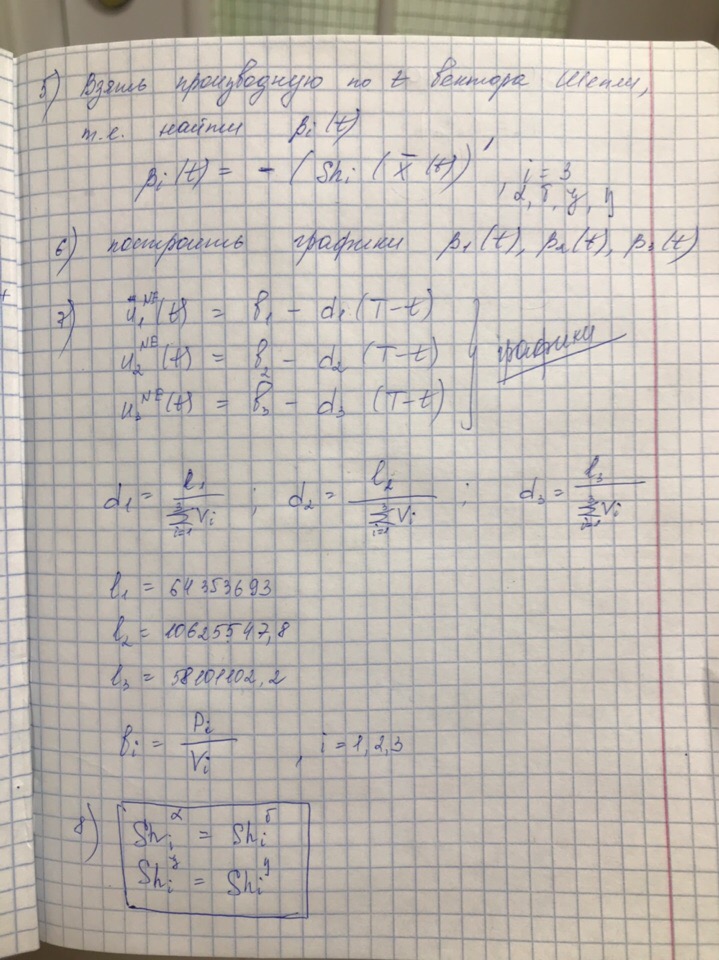 5) Взять производную по t вектора Шепли,
т.е. найти βi(t)
βi(t) = - (Shi (x̄(t))', i = 3
α, б, у, у
6) построить графики β1(t), β2(t), β3(t)
7) u1^NE(t) = b1 - d1 (T-t)
u2^NE(t) = b2 - d2 (T-t)
u3^NE(t) = b3 - d3 (T-t)
графики
d1 = l1 / Σ(i=1..3) Vi ; d2 = l2 / Σ(i=1..3) Vi ; d3 = l3 / Σ(i=1..3) Vi
l1 = 64353693
l2 = 10625547,8
l3 = 58101102,2
bi = Pi / Vi , i = 1,2,3
8) Shi^α = Shi^б
Shi = Shi^у